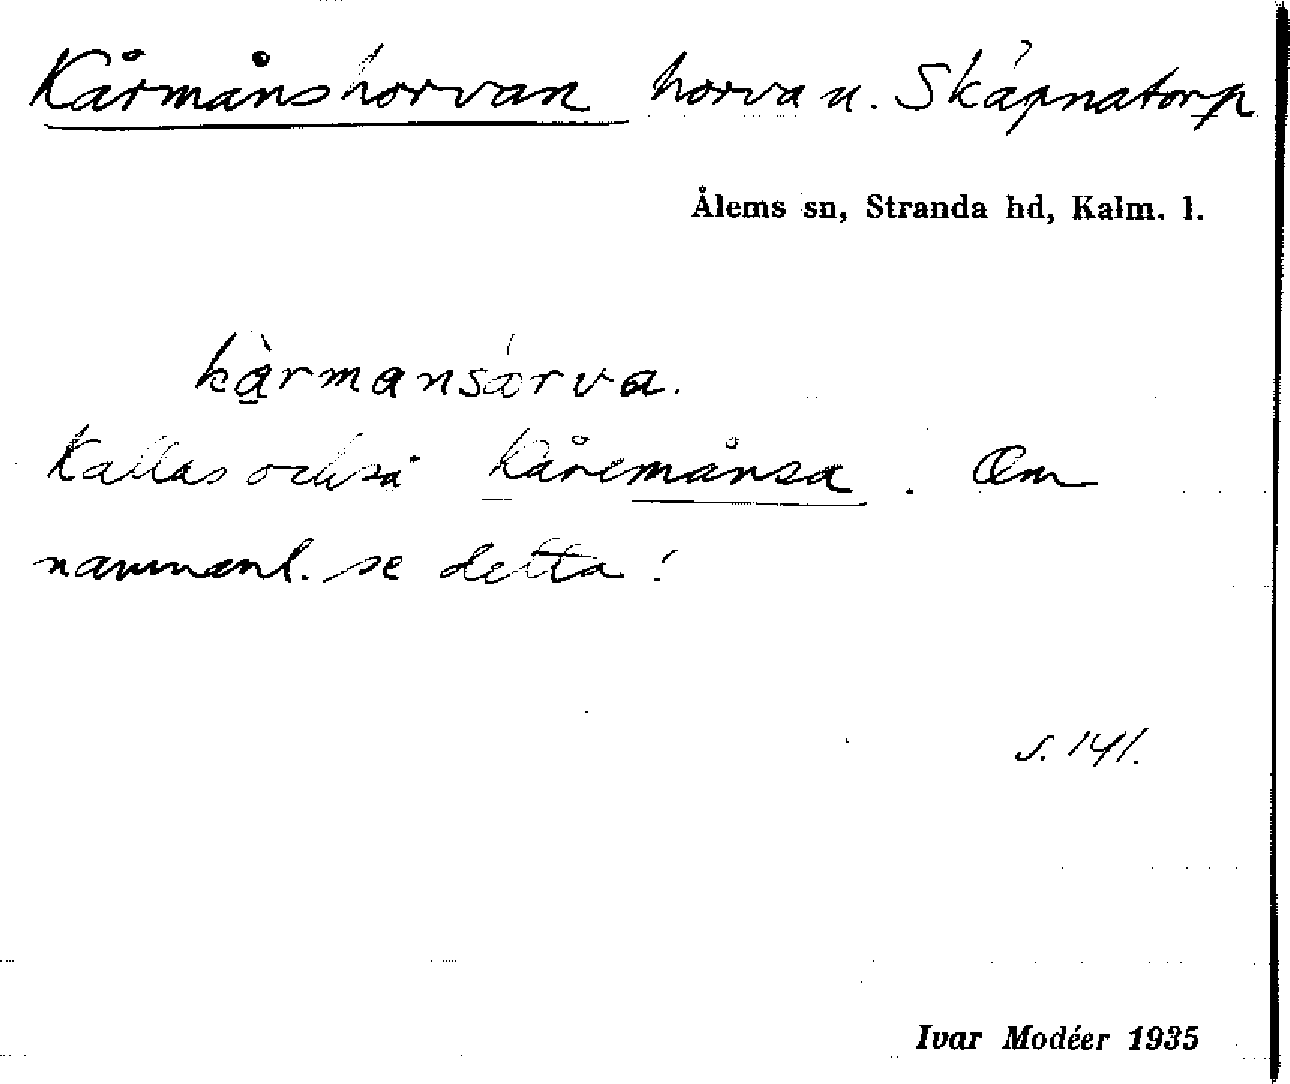 Kårmånshorvan horva u. Skäpnatorp
Ålems sn, Stranda hd, Kalm. l.
kàrmansárva.
Kallas också Kåremånsa. Om
namnenl. se detta!
s. 141.
Ivar Modéer 1935